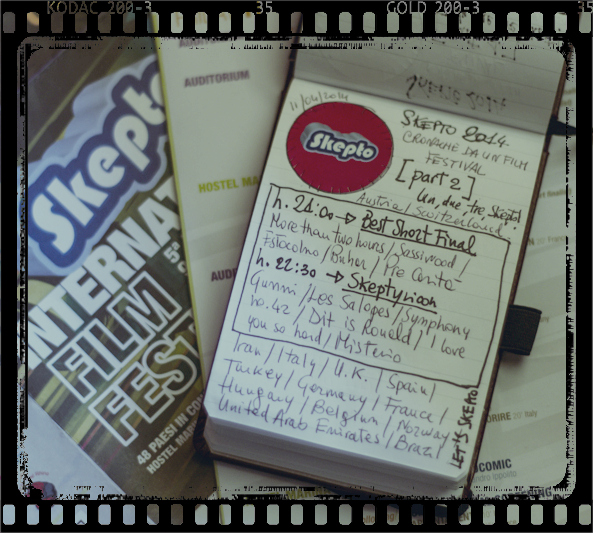 KODAC 200-3
35
GOLD 200-3
35
Skepto
INTERNAT
FILM
FEST
5ª
48 PAESI IN CON
HOSTEL MA
AUDITORIUM
HOSTEL MA
AUDI
11/04/2014
Skepto
SKEPTO 2014.
CRONACHE DA UN FILM
FESTIVAL
[part 2]
Un, due, tre, Skepto!
Austria/Switzerland
h. 21:00 → Best Short Final
More than two hours / Sassiwood /
Estocolmo / Buhar / Me Cenita
h. 22:30 → Skeptyricon
Gummi / Los Salopes / Symphony
no. 42 / Dit is Ronald / I love
you so hard / Misterio
Iran / Italy / U.K. / Spain /
Turkey / Germany / France /
Hungary / Belgium / Norway
United Arab Emirates / Brazil
LET'S SKEPTO!
Italy
COMIC